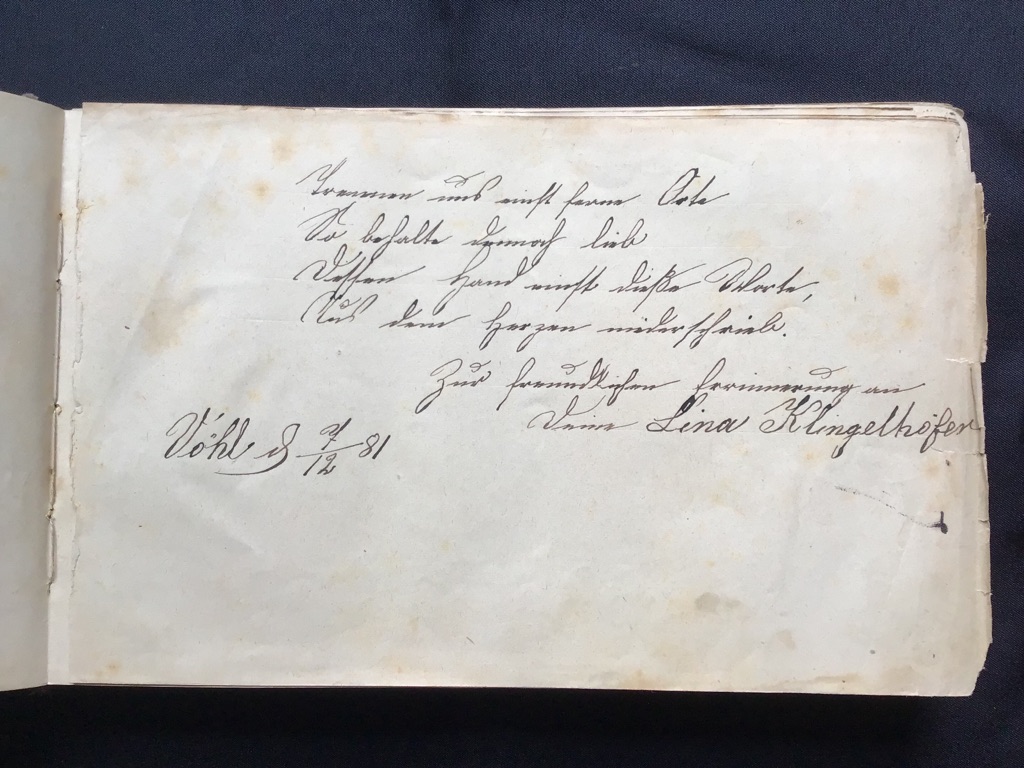 Trennen uns einst ferne Orte
So behalte dennoch lieb
Dessen Hand einst diese Worte,
Aus dem Herzen niederschrieb.
Zur freundlichen Erinnerung an
Deine Lina Klingelhöfer
Vöhl d 7/12 81